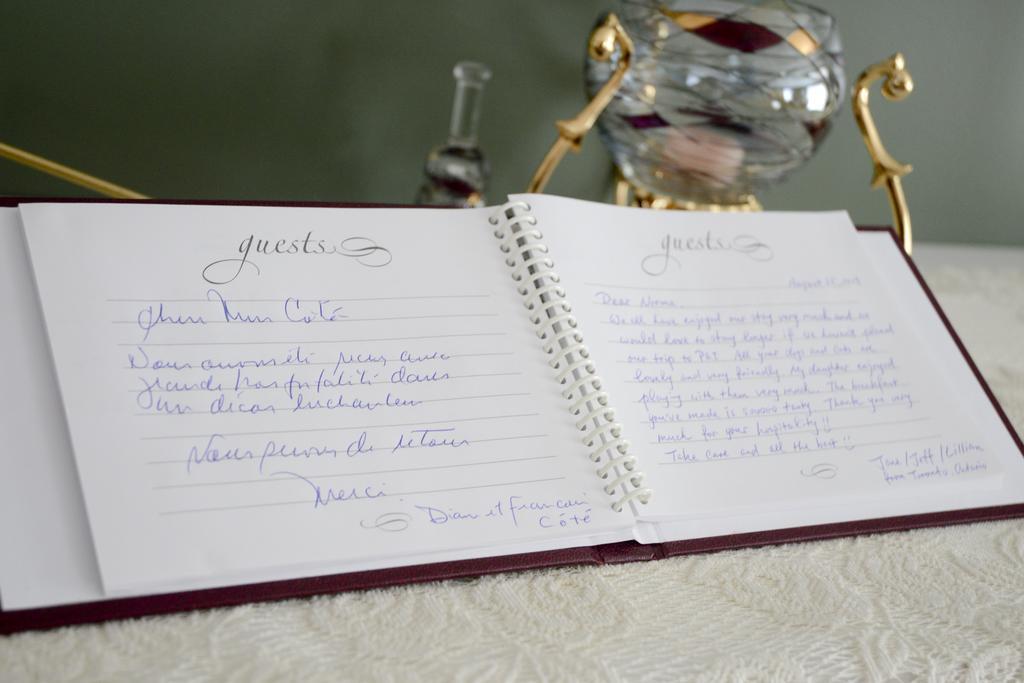 guests
Côté
grande hospitalité dans
un décor enchanteur
retour
Merci
Dian et Francois
Côté
guests
August
Dear Norma,
We all have enjoyed our stay very much and we
would love to stay longer if we haven't planed
our trip to PEI. All your dogs and cats are
lovely and very friendly. My daughter enjoyed
playing with them very much. The breakfast
you've made is soooooo tasty. Thank you very
much for your hospitality!!
Take care and all the best!!
Jane/Jeff/Lillian
from Toronto, Ontario